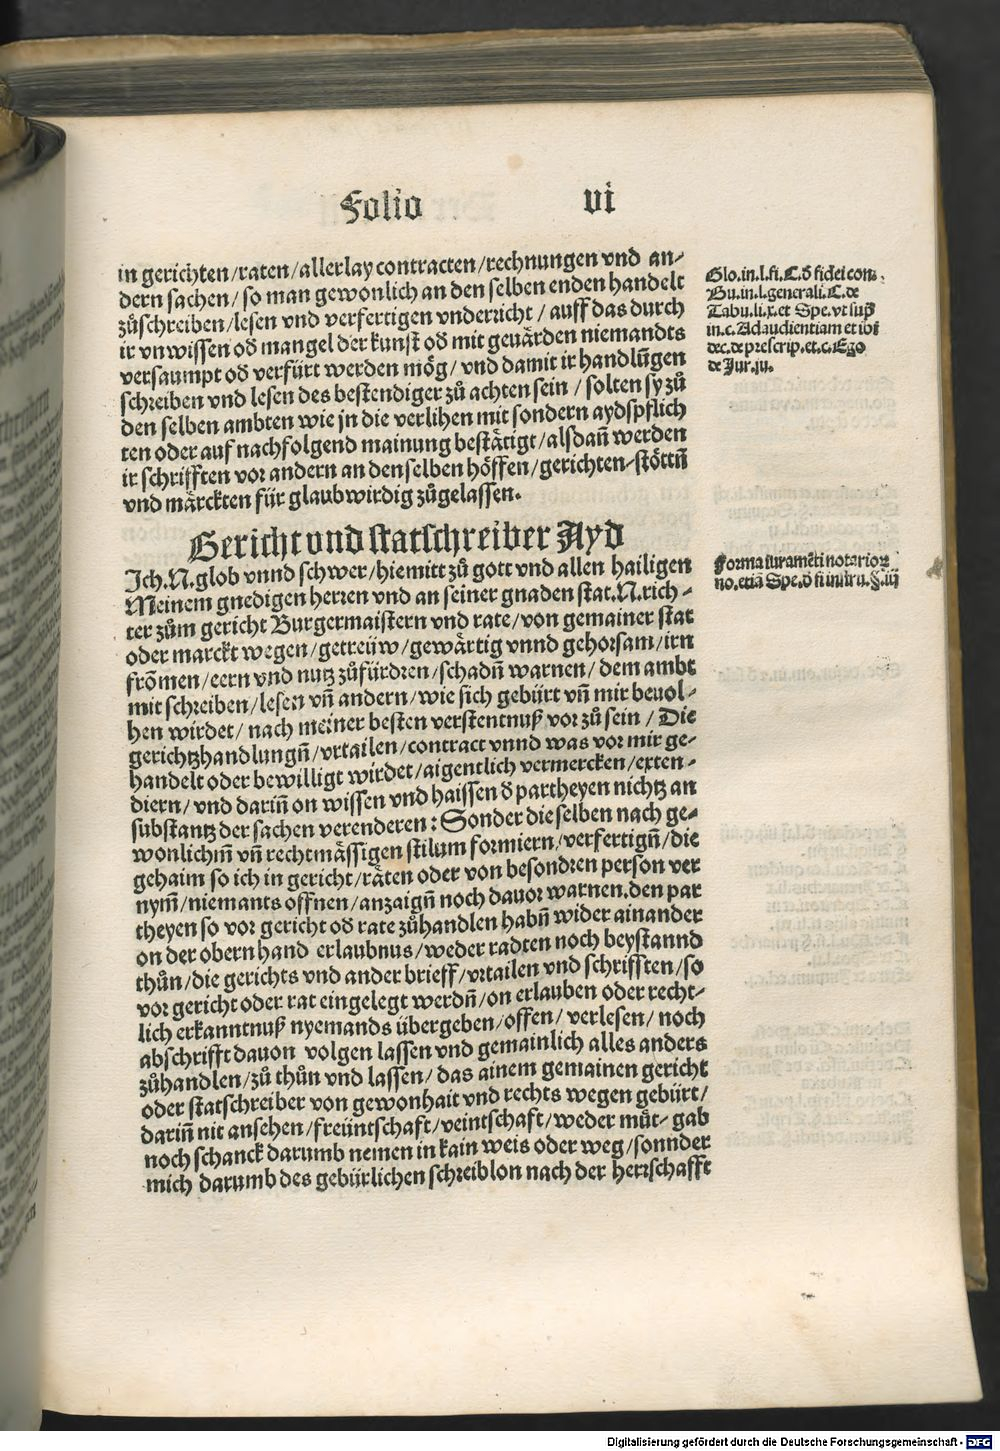 Folio vi
in gerichten/raten/allerlay contracten/rechnungen vnd an-
dern sachen/ so man gewonlich an den selben enden handelt
zůschreiben/lesen vnd verfertigen vnderricht / auff das durch
ir vnwissen oď mangel der kunst oď mit geuärden niemandts
versaumpt oď verfürt werden mög/ vnd damit ir handlūgen
schreiben vnd lesen des bestendiger zů achten sein / solten sy zů
den selben ambten wie jn die verlihen mit sondern aydspflich
ten oder auf nachfolgend mainung bestätigt/alsdañ werden
ir schrifften vor andern an denselben höffen/gerichten-stöttñ
vnd märckten für glaubwirdig zůgelassen.
Glo.in.l.fi.C.ď fidei com.
Bu.in.l.generali.C.de
Tabu.li.x.et Spe.vt sup̄
in.c.Ad audientiam et ibi
dec.de prescrip.et.c.Ego
de Jur.ju.
Gericht vnd statschreiber Ayd
Forma iuramēti notarior
no.etiā Spe.ď fi instru.§.iij
Ich.N.glob vnnd schwer/hiemitt zů gott vnd allen hailigen
Meinem gnedigen herren vnd an seiner gnaden stat.N.rich-
ter zům gericht Burgermaistern vnd rate/von gemainer stat
oder marckt wegen/getreüw/gewärtig vnnd gehorsam/irn
frömen/eern vnd nutz zůfürdren/schadñ warnen/ dem ambt
mit schreiben/lesen vñ andern/wie sich gebürt vñ mir beuol-
hen wirdet/ nach meiner besten verstentnuß vor zů sein / Die
gerichtzhandlungñ/vrtailen/contract vnnd was vor mir ge-
handelt oder bewilligt wirdet/aigentlich vermercken/exten-
diern/vnd dariñ on wissen vnd haissen ď partheyen nichtz an
substantz der sachen verenderen: Sonder die selben nach ge-
wonlichm̄ vñ rechtmässigen stilum formiern/verfertigñ/die
gehaim so ich in gericht/räten oder von besondren person ver
nym̄/niemants offnen/anzaigñ noch dauor warnen.den par
theyen so vor gericht oď rate zůhandlen habñ wider ainander
on der obern hand erlaubnus/weder radten noch beystannd
thůn/die gerichts vnd ander brieff/vrtailen vnd schrifften/so
vor gericht oder rat eingelegt werdñ/on erlauben oder recht-
lich erkanntnuß nyemands übergeben/offen/ verlesen/ noch
abschrifft dauon volgen lassen vnd gemainlich alles anders
zůhandlen/zů thůn vnd lassen/ das ainem gemainen gericht
oder statschreiber von gewonhait vnd rechts wegen gebürt/
dariñ nit ansehen/freüntschaft/veintschaft/weder můt- gab
noch schanck darumb nemen in kain weis oder weg/sonnder
mich darumb des gebürlichen schreiblon nach der herrschafft
Digitalisierung gefördert durch die Deutsche Forschungsgemeinschaft - DFG